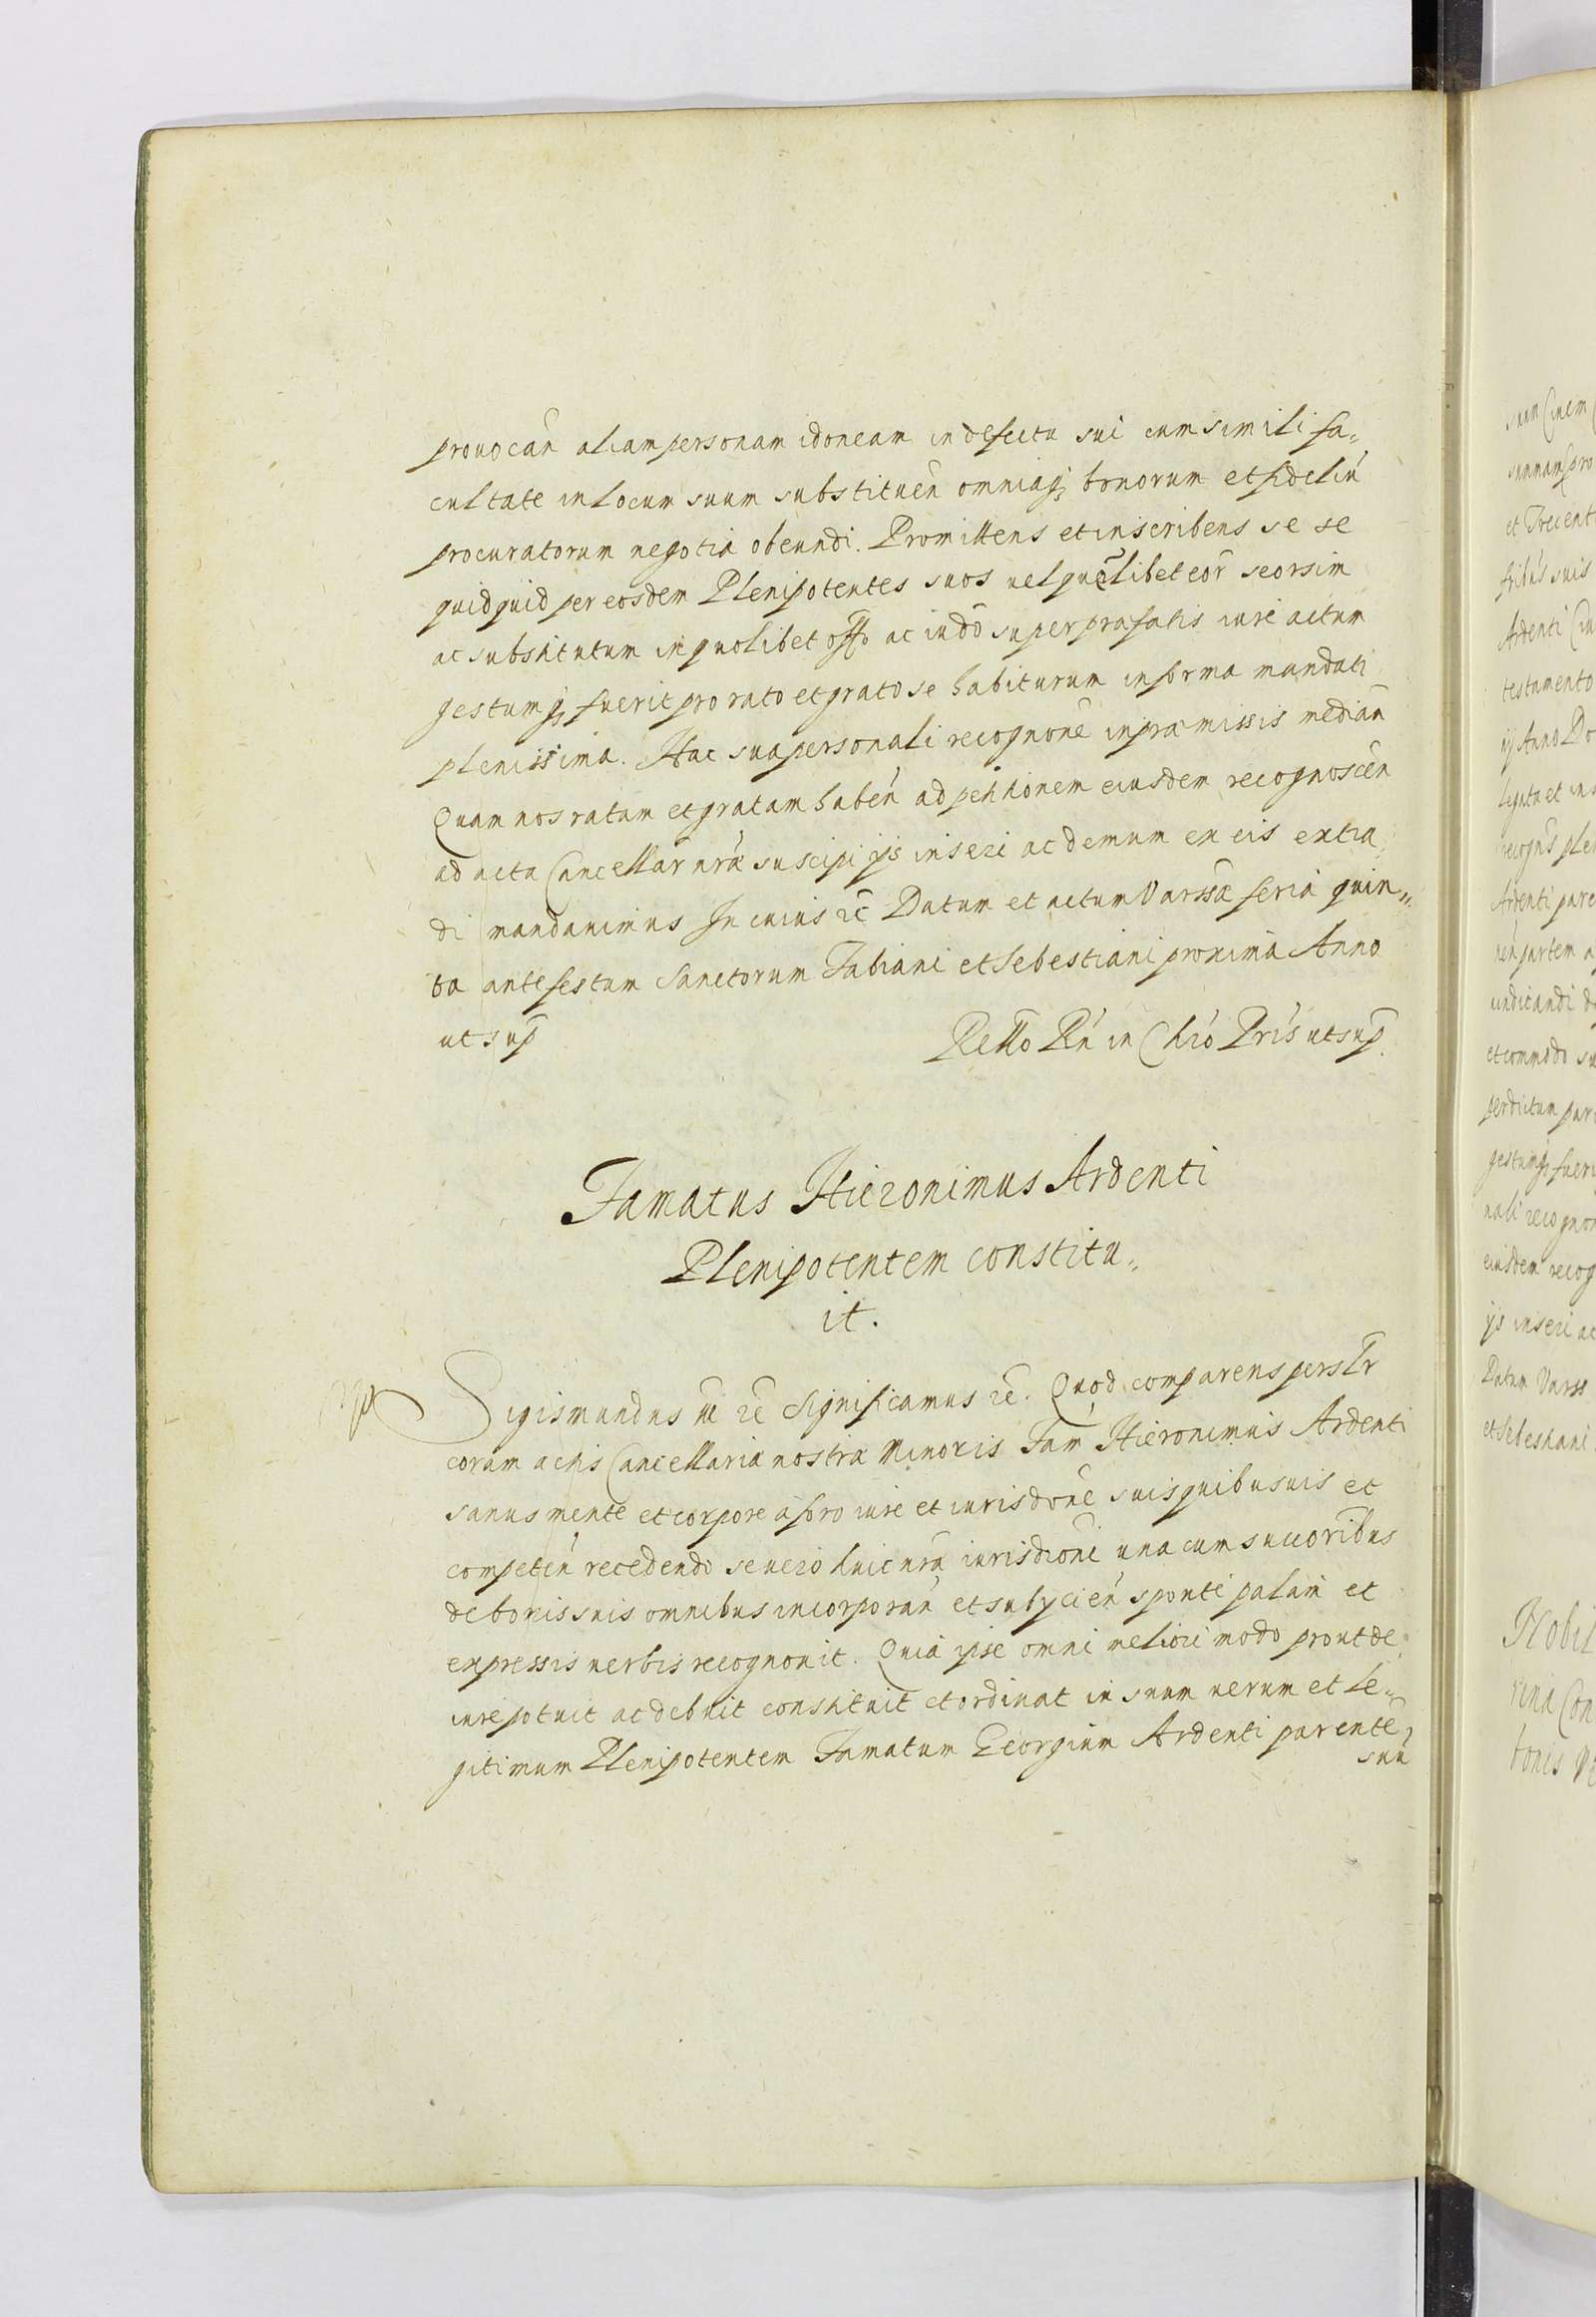 prouocan̄ aliam personam idoneam in defectu sui cum simili fa„
cultate in locum suum substituen̄ omniaq; bonorum et fideliū
procuratorum negotia obeundi. Promittens et inscribens se se
quidquid per eosdem Plenipotentes suos uel quēlibet eor̄ seorsim
ac substitutum in quolibet offō ac iudō super præfatis iure actum
gestumq; fuerit pro rato et grato se habiturum in forma mandati
plenissima. Hac sua personali recognōne in præmissis median̄
Quam nos ratam et gratam haben̄ ad petitionem eiusdem recognoscen̄
ad acta Cancellar̄ nr̄æ suscipi ijs inseri ac demum ex eis extra„
di mandauimus In cuius rē Datum et actum Varssæ feria quin„
ta ante festum Sanctorum Fabiani et Sebestiani proxima Anno
ut sup̄
Rello Rn̄ in Chro Pr̄is ut sup̄.
Famatus Hieronimus Ardenti
Plenipotentem constitu„
it.
Sigismundus III rē Significamus rē. Quod comparens perslr̄
coram actis Cancellariæ nostræ Minoris Fam̄ Hieronimus Ardenti
sanus mente et corpore à foro iure et iurisdōne suis quibusuis et
competen̄ recedendo se uero huic nr̄æ iurisdōni una cum succōribus
de bonis suis omnibus incorporan̄ et subycien̄ sponte palam et
expressis uerbis recognouit. Quia ipse omni meliori modo prout de
iure potuit ac debuit constituit et ordinat in suum uerum et le„
gitimum Plenipotentem Famatum Georgium Ardenti parentē
suū
Ardenti
testamento
ij Anno Do
Datum Varss
Nobil